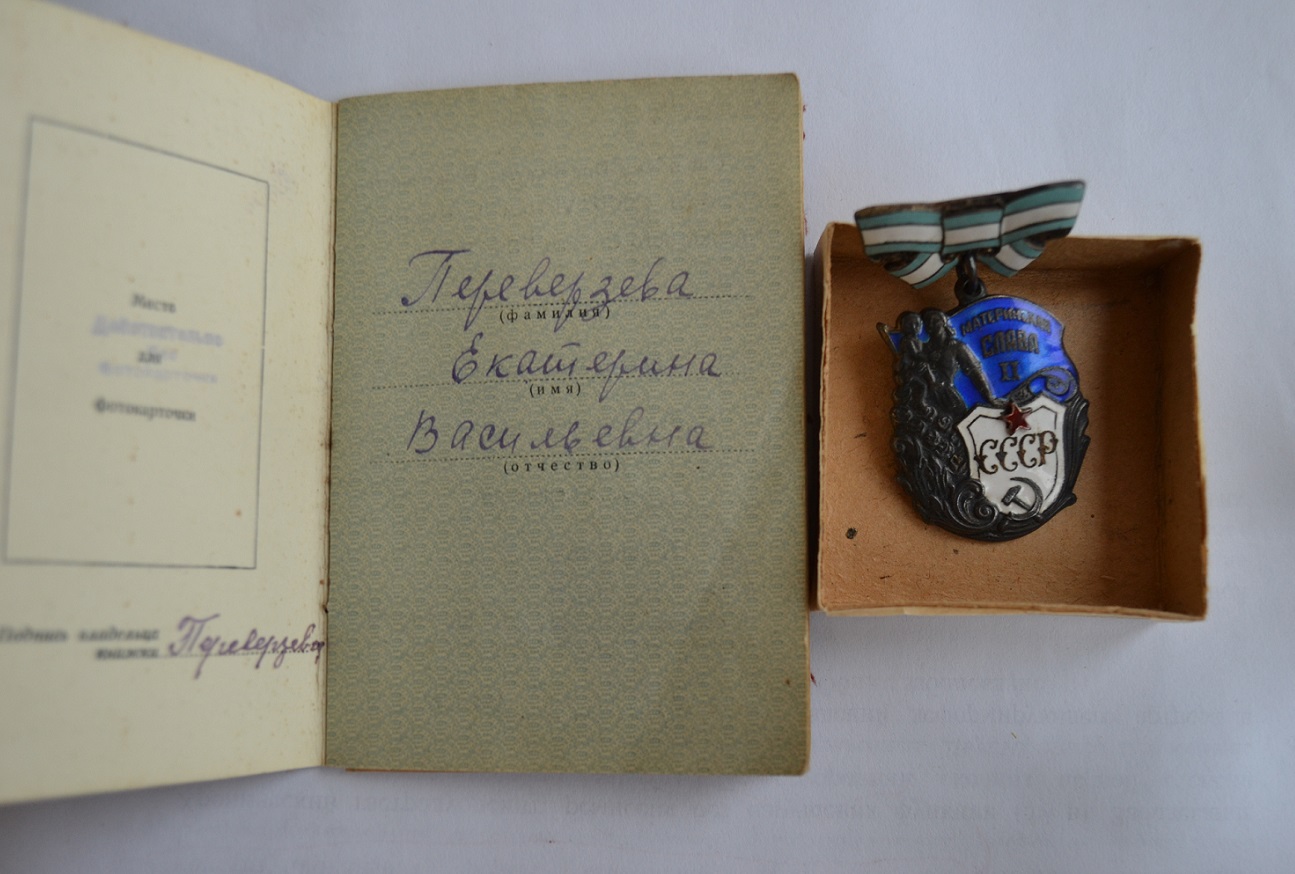 Место
Действительно
без
для
фотокарточки
фотокарточки
Подпись владельца
книжки Переверзева
Переверзева
(фамилия)
Екатерина
(имя)
Васильевна
(отчество)
МАТЕРИНСКАЯ
СЛАВА
II
СССР